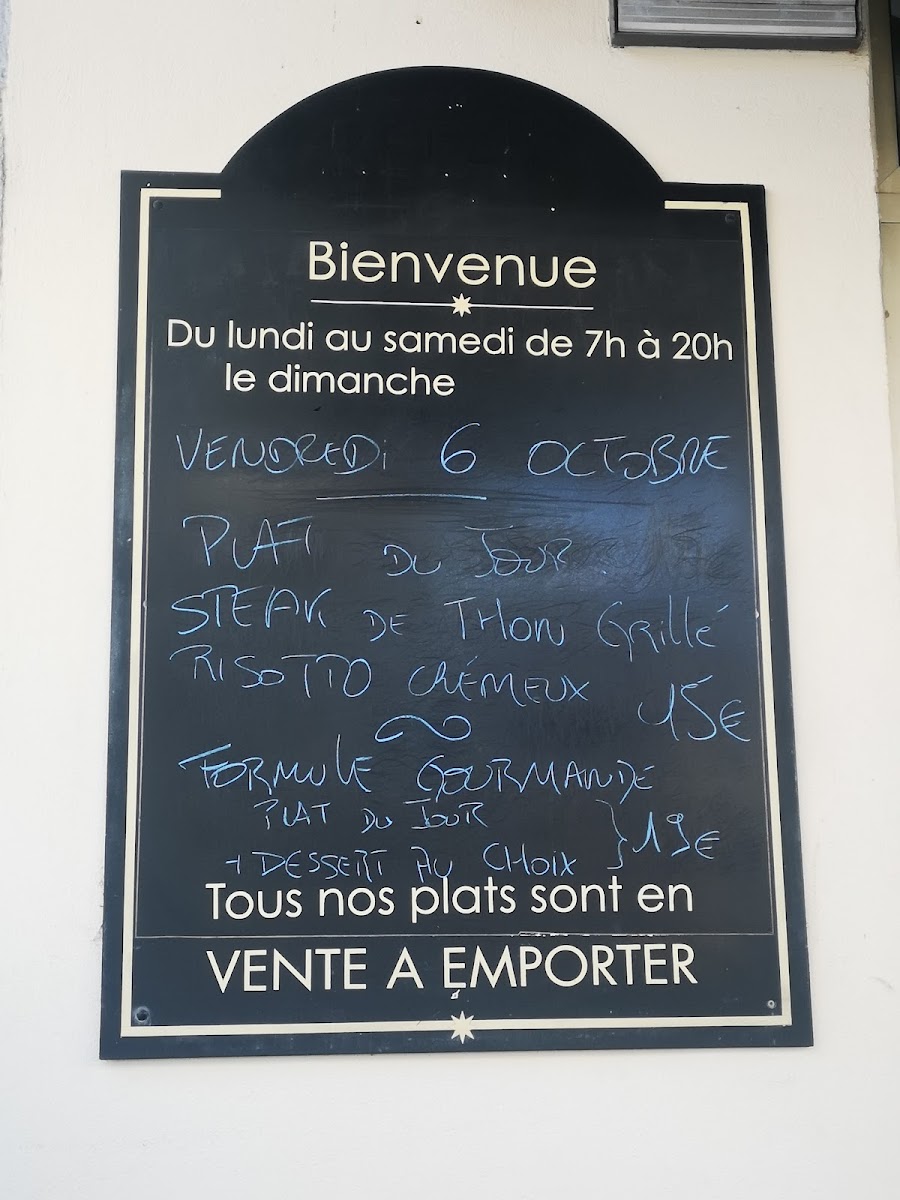 Bienvenue
Du lundi au samedi de 7h à 20h
le dimanche
VENDREDi 6 OCTOBRE
PLAT DU JOUR
STEAK DE THON Grillé
RISOTTO CRÉMEUX 15€
FORMULE GOURMANDE
PLAT DU JOUR
+ DESSERT AU CHOIX } 19€
Tous nos plats sont en
VENTE A EMPORTER